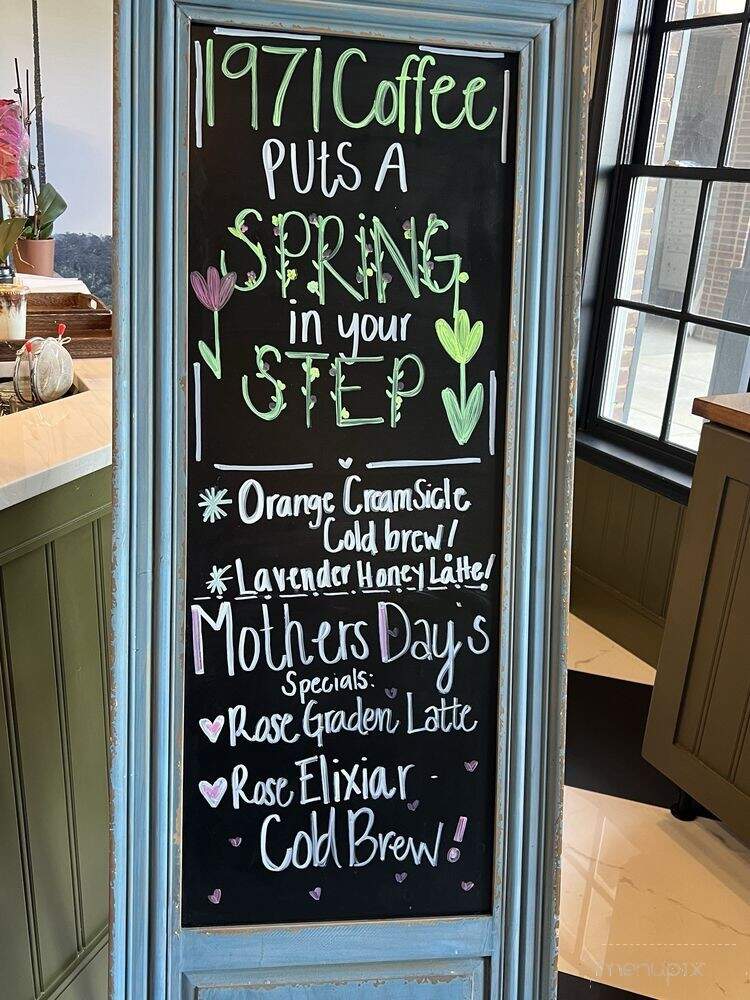 1971 Coffee
PUts A
SPRiNG
in your
STEP
* Orange CreamSicle
Cold brew!
* Lavender Honey Latte!
Mothers Day's
Specials:
Rose Graden Latte
Rose Elixiar -
Cold Brew!
menupix